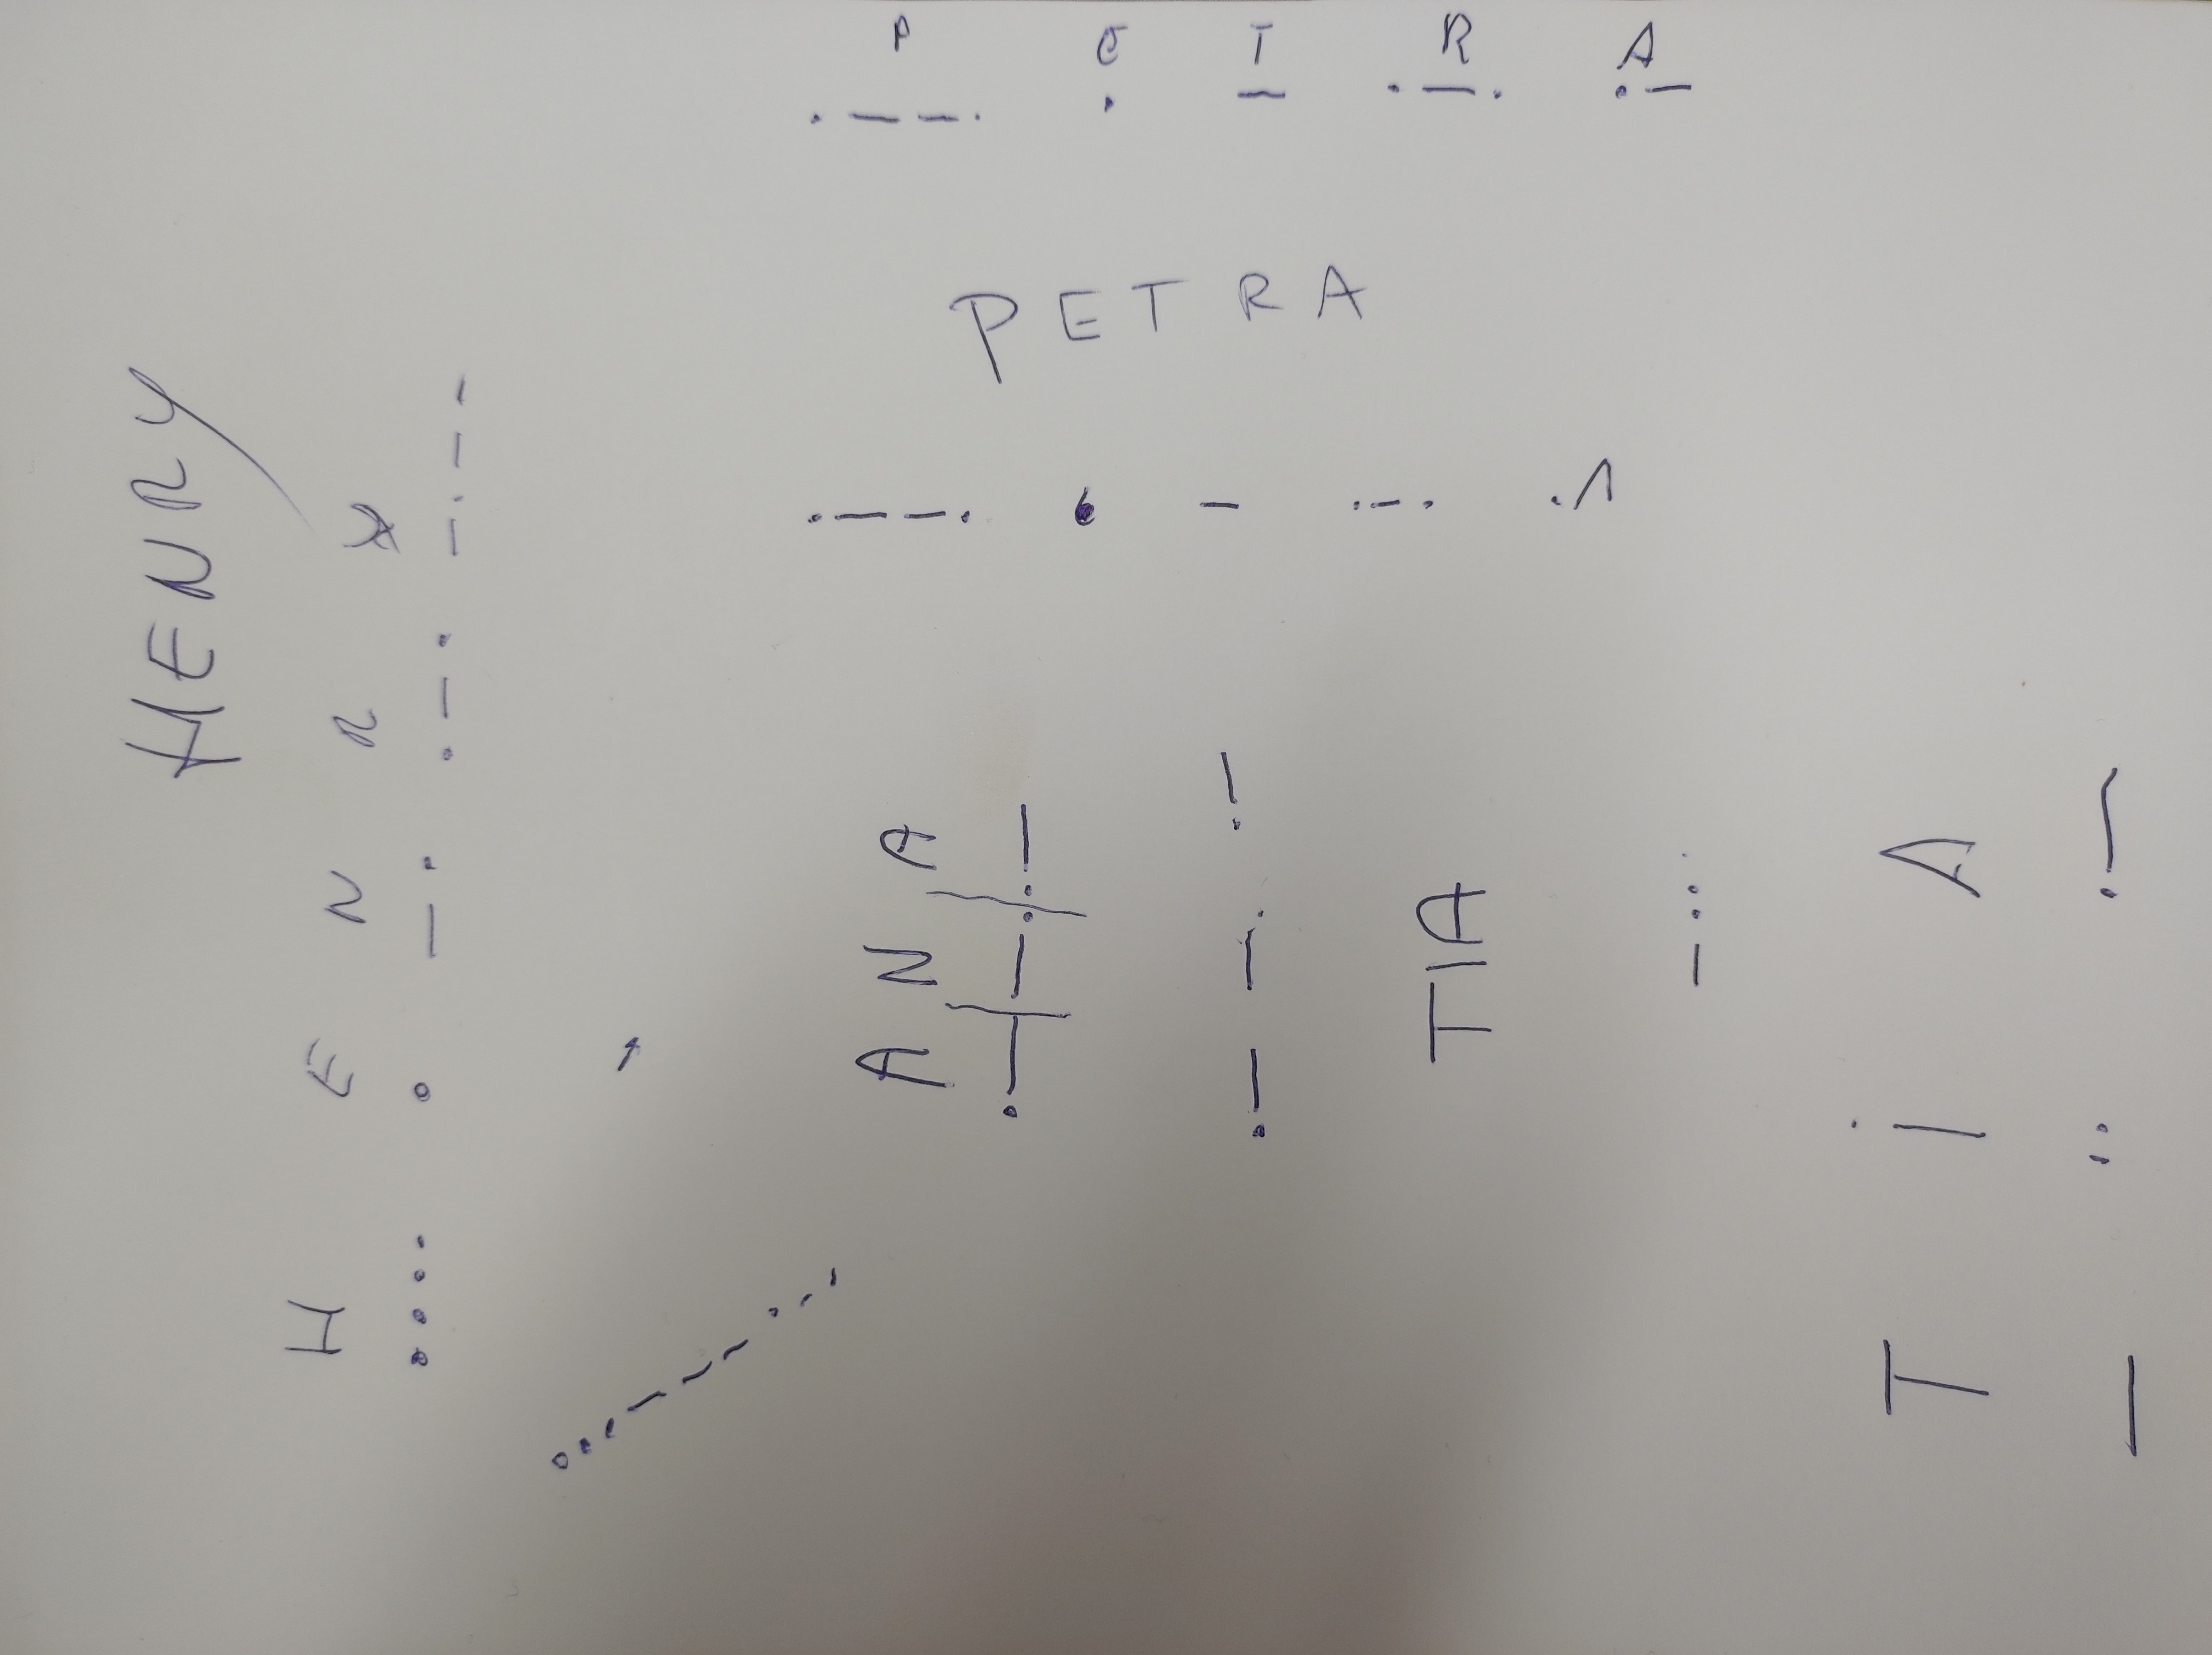 P E T R A
. — — . . — . — . . —
PETRA
. — — . . — . — . . —
HENRY
H E N R Y
. . . . . — . . — . — . — —
. . . — — — . . .
A N A
. — / — . / . —
. — — . . —
TIA
— . . .
T I A
— . . . —